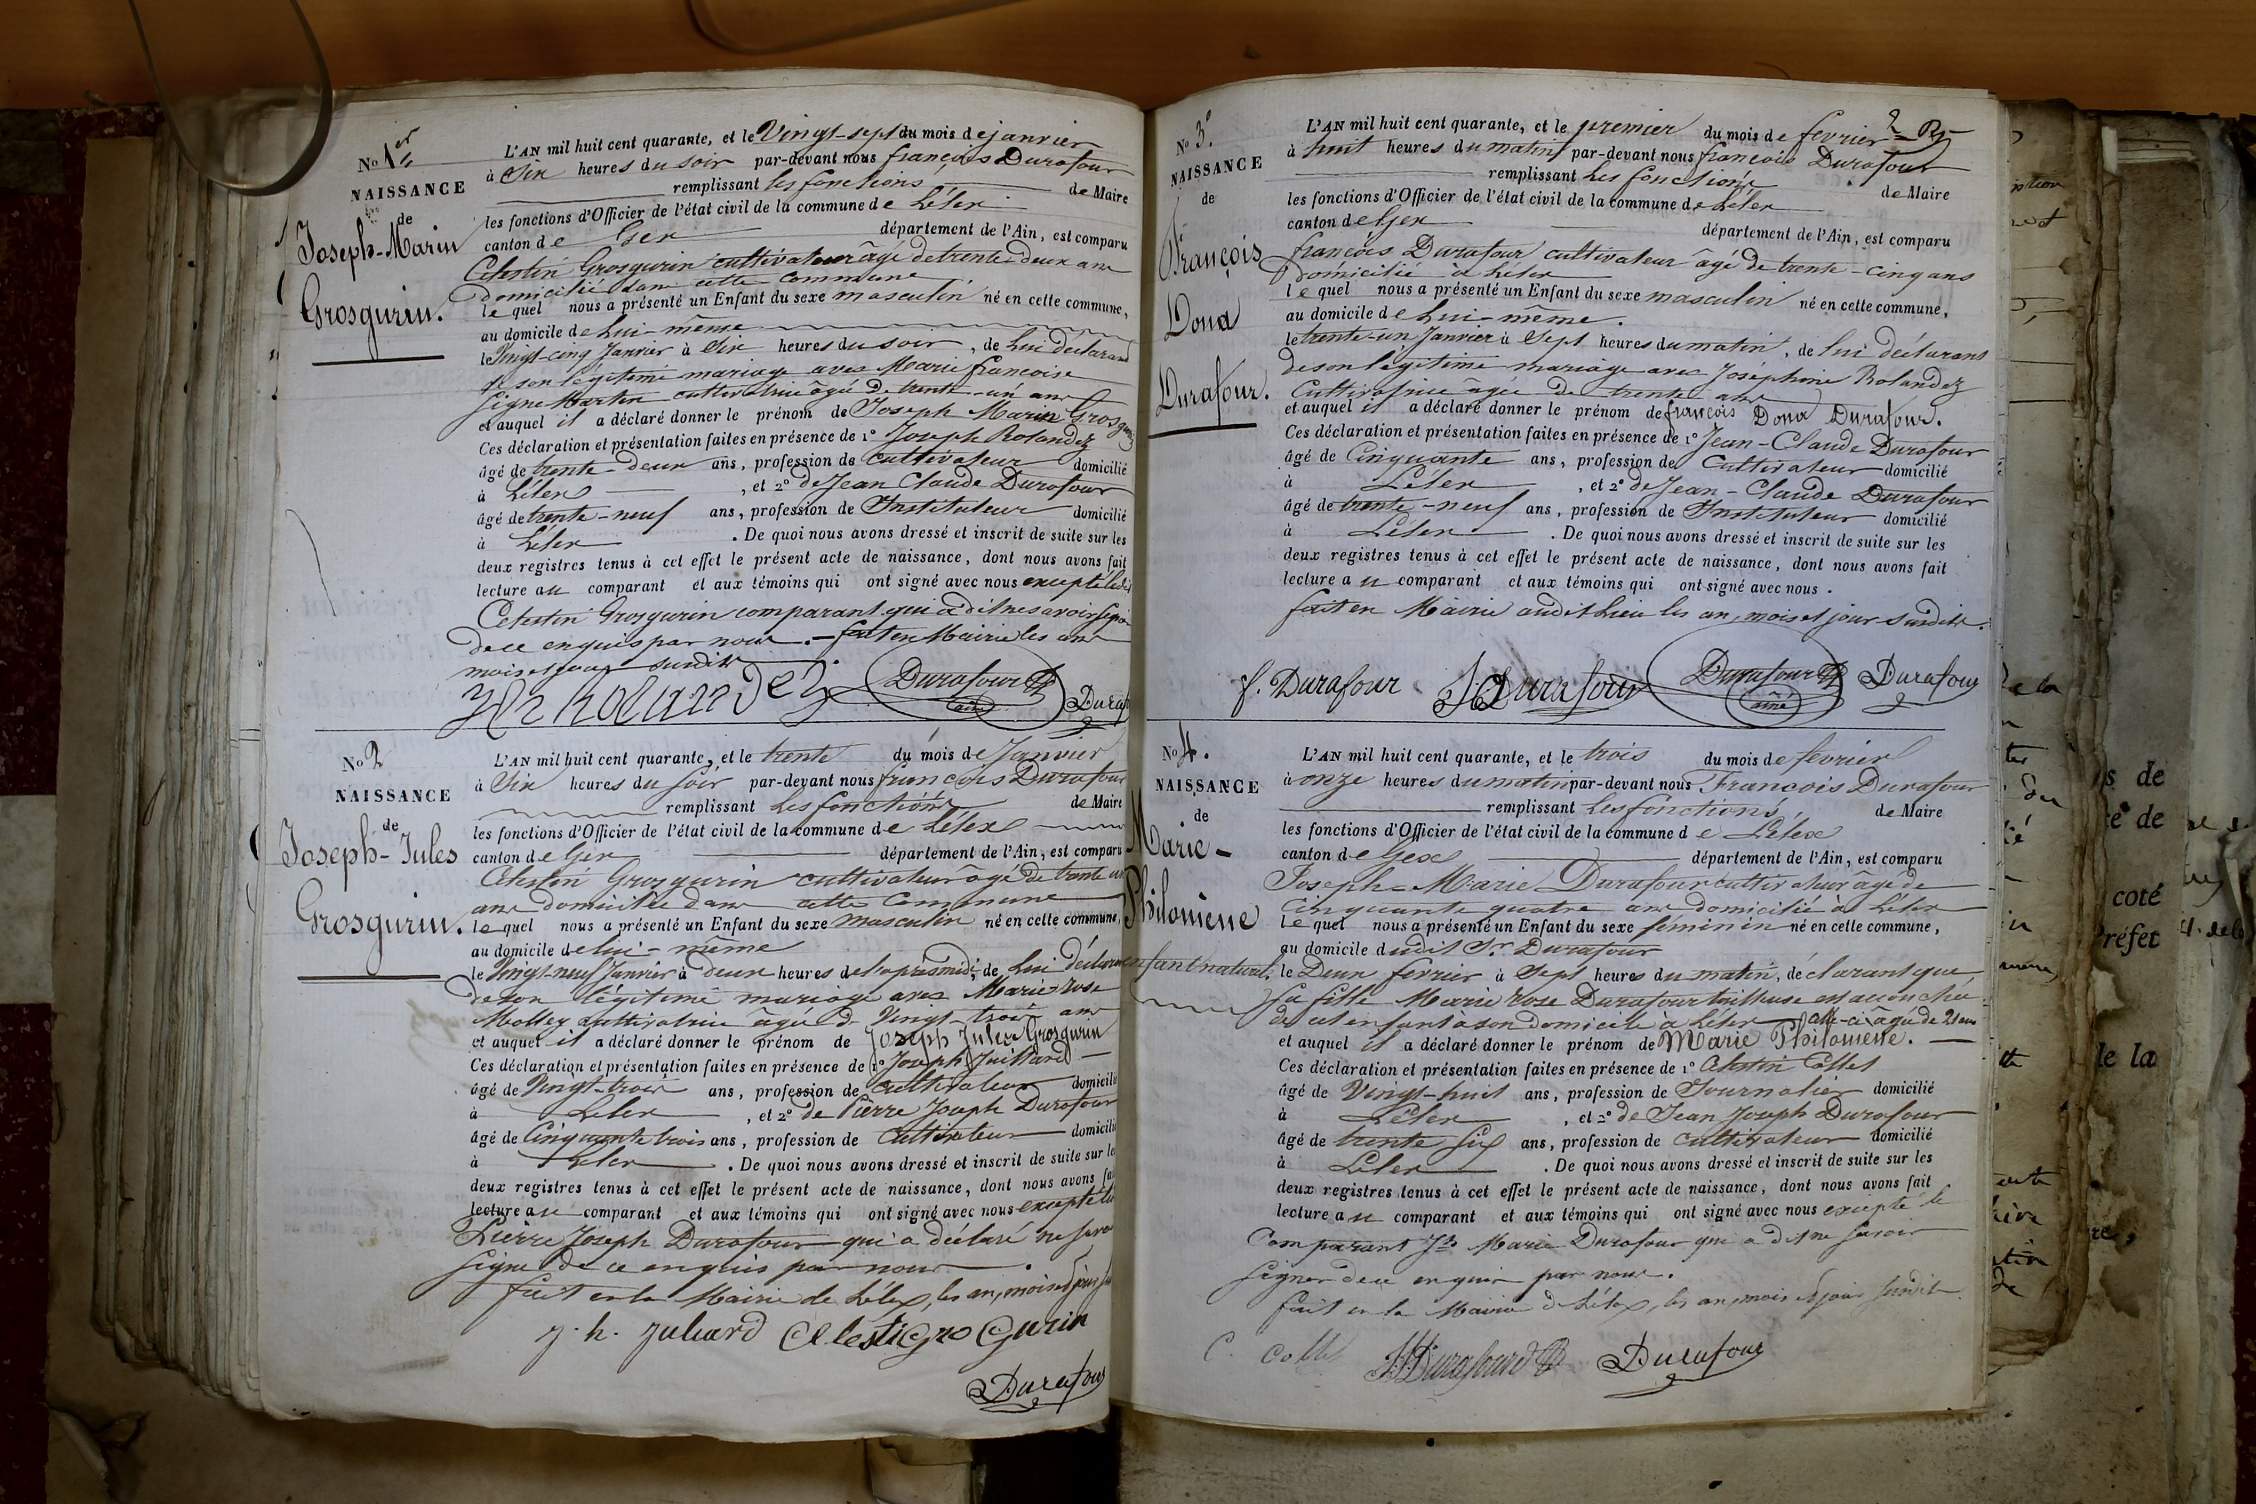 No 1er
NAISSANCE
de
Joseph-Marin
Grosgurin.
L'AN mil huit cent quarante, et le Vingt-sept du mois de janvier
à Six heures du soir par-devant nous françois Durafour
remplissant les fonctions de Maire
les fonctions d'Officier de l'état civil de la commune de Lélex
canton de Gex département de l'Ain, est comparu
Célestin Grosgurin cultivateur âgé de trente-deux ans
domicilié dans cette commune
lequel nous a présenté un Enfant du sexe masculin né en cette commune,
au domicile de Lui-même
le Vingt-cinq Janvier à Six heures du soir, de Lui déclarant
et son légitime mariage avec Marie françoise
Signe Martin cultivatrice âgée de trente-un ans
et auquel il a déclaré donner le prénom de Joseph Marin Grosgurin
Ces déclaration et présentation faites en présence de 1º Joseph Rolandez
âgé de trente-deux ans, profession de cultivateur domicilié
à Lélex, et 2º de Jean Claude Durafour
âgé de trente-neuf ans, profession de Instituteur domicilié
à Lélex. De quoi nous avons dressé et inscrit de suite sur les
deux registres tenus à cet effet le présent acte de naissance, dont nous avons fait
lecture au comparant et aux témoins qui ont signé avec nous excepté ledit
Célestin Grosgurin comparant qui a dit ne savoir signer
de ce enquis par nous. — fait en Mairie les an
mois et jour susdits
Jh Rolandez Durafour aîné Durafour
No 2
NAISSANCE
de
Joseph-Jules
Grosgurin.
L'AN mil huit cent quarante, et le trente du mois de Janvier
à Six heures du soir par-devant nous françois Durafour
remplissant les fonctions de Maire
les fonctions d'Officier de l'état civil de la commune de Lélex
canton de Gex département de l'Ain, est comparu
Célestin Grosgurin cultivateur âgé de trente un
ans domicilié dans cette Commune
lequel nous a présenté un Enfant du sexe masculin né en cette commune,
au domicile de lui-même
le Vingt-neuf Janvier à deux heures de l'après midi, de Lui déclarant
de son légitime mariage avec Marie rose
Mollex cultivatrice âgée de Vingt-trois ans
et auquel il a déclaré donner le prénom de Joseph Jules Grosgurin
Ces déclaration et présentation faites en présence de 1º Joseph Juillard
âgé de Vingt-trois ans, profession de cultivateur domicilié
à Lélex, et 2º de Pierre Joseph Durafour
âgé de Cinquante trois ans, profession de cultivateur domicilié
à Lélex. De quoi nous avons dressé et inscrit de suite sur les
deux registres tenus à cet effet le présent acte de naissance, dont nous avons fait
lecture au comparant et aux témoins qui ont signé avec nous excepté
Pierre Joseph Durafour qui a déclaré ne savoir
signer de ce enquis par nous.
fait en la Mairie de Lélex, les an, mois et jour
j. h. juliard Célesti Gro Gurin
Durafour
No 3º
NAISSANCE
de
François
Dona
Durafour.
L'AN mil huit cent quarante, et le premier du mois de fevrier
à huit heures du matin par-devant nous françois Durafour
remplissant les fonctions de Maire
les fonctions d'Officier de l'état civil de la commune de Lélex
canton de Gex département de l'Ain, est comparu
françois Durafour cultivateur âgé de trente-cinq ans
domicilié à Lélex
lequel nous a présenté un Enfant du sexe masculin né en cette commune,
au domicile de Lui-même.
le trente-un Janvier à Sept heures du matin, de lui déclarant
de son légitime mariage avec Joséphine Rolandez
Cultivatrice âgée de trente ans
et auquel il a déclaré donner le prénom de françois Dona Durafour.
Ces déclaration et présentation faites en présence de 1º Jean-Claude Durafour
âgé de Cinquante ans, profession de Cultivateur domicilié
à Lélex, et 2º de Jean-Claude Durafour
âgé de trente-neuf ans, profession de Instituteur domicilié
à Lélex. De quoi nous avons dressé et inscrit de suite sur les
deux registres tenus à cet effet le présent acte de naissance, dont nous avons fait
lecture au comparant et aux témoins qui ont signé avec nous.
fait en Mairie audit Lieu les an, mois et jour susdits.
f. Durafour J C Durafour Durafour aîné Durafour
No 4.
NAISSANCE
de
Marie-
Philomène
enfant naturel
L'AN mil huit cent quarante, et le trois du mois de fevrier
à onze heures du matin par-devant nous François Durafour
remplissant les fonctions de Maire
les fonctions d'Officier de l'état civil de la commune de Lélex
canton de Gex département de l'Ain, est comparu
Joseph-Marie Durafour cultivateur âgé de
cinquante quatre ans domicilié à Lélex
Lequel nous a présenté un Enfant du sexe féminin né en cette commune,
au domicile dudit Sr. Durafour
le Deux fevrier à Sept heures du matin, déclarant que
sa fille Marie rose Durafour tailleuse est accouchée
de cet enfant à son domicile à Lélex celle-ci âgée de 21 ans
et auquel il a déclaré donner le prénom de Marie Philomène.
Ces déclaration et présentation faites en présence de 1º Célestin Collet
âgé de Vingt-huit ans, profession de Journalier domicilié
à Lélex, et 2º de Jean Joseph Durafour
âgé de trente six ans, profession de cultivateur domicilié
à Lélex. De quoi nous avons dressé et inscrit de suite sur les
deux registres tenus à cet effet le présent acte de naissance, dont nous avons fait
lecture au comparant et aux témoins qui ont signé avec nous excepté le
Comparant Jh Marie Durafour qui a dit ne savoir
signer de ce enquis par nous.
fait en la Mairie de Lélex, les an, mois et jour susdits.
C. Collet Durafour
s de
ce de
coté
Préfet
le la